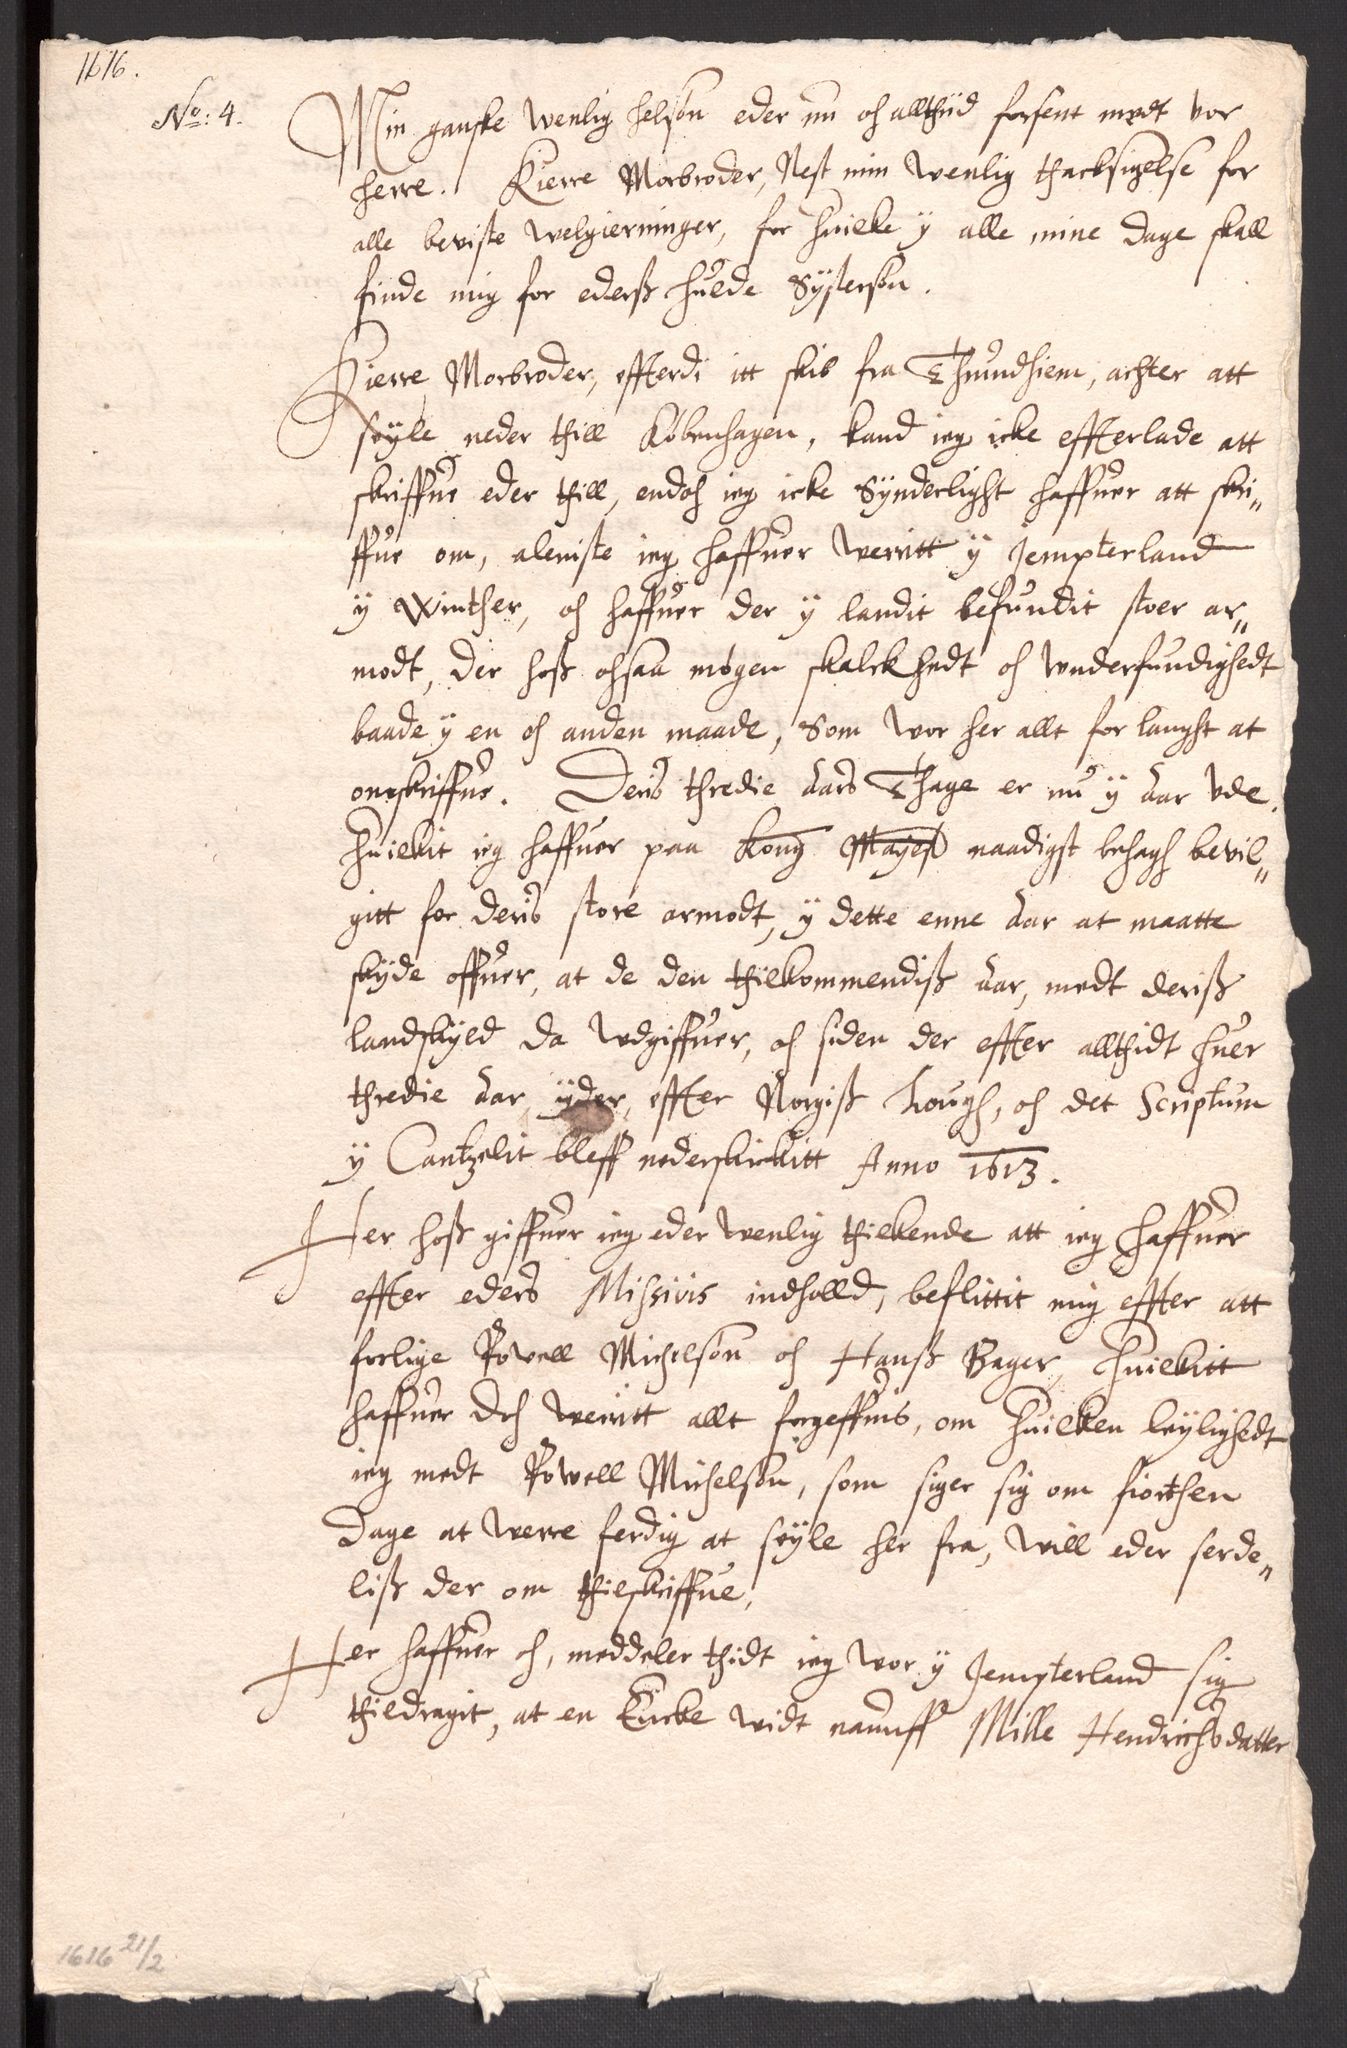 1616.
No: 4.
Min ganske wenlig helsön eder nu oh allthijd forsent medt vor
herre. Kierre Morbroder, Nest min wenlig thacksigelse for
alle beviste welgierninger, for huilke y alle mine dage skall
finde mig for ederß hulde Systersön.
Kierre Morbroder, effterdi itt skib fra Thrundhiem, achter att
seyle neder thill Köbenhagen, kand ieg icke effterlade att
skriffue eder thill, endoh ieg icke Synderlight haffuer att skri„
ffue om, aleniste ieg haffuer werritt y Jempterland
y Winther, oh haffuer der y landit befundit stoer ar„
modt, der hoß ohsaa mögen skalckhedt oh wnderfundighedt
baade y en oh anden maade, som wor her allt for langht at
omskriffue. Deris thredie aars Thage er nu y aar vde.
huilkit ieg haffuer paa Kong Mayest naadigst behagh bevil„
gitt for deris store armodt, y dette enne aar at maatte
skyde offuer, at de den thilkommendiß aar, medt deriß
landskyld da wdgiffuer, oh siden der effter allthidt huer
thredie aar yder, effter Norgiß lough, oh det Scriptum
y Cantzelit bleff nederskickitt Anno 1613.
Her hoß giffuer ieg eder wenlig thilkende att ieg haffuer
effter eders Missivis indholld, beflittit mig effter att
forlige Powell Michelsön oh Hanß Bager, huilkitt
haffuer doh werritt allt forgeffuis, om huilken leylighedt
ieg medt Powell Michelsön, som siger sig om fiorthen
dage at werre ferdig at seyle her fra, will eder serde„
liß der om thilskriffue,
Her haffuer oh, meddeler thidt ieg wor y Jempterland sig
thildragit, at en Encke widt nauuff Mille Hendrichsdatter
1616 21/2